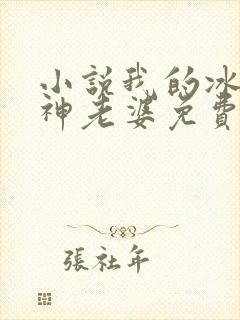 小說我的冰
神老婆免費
張社年